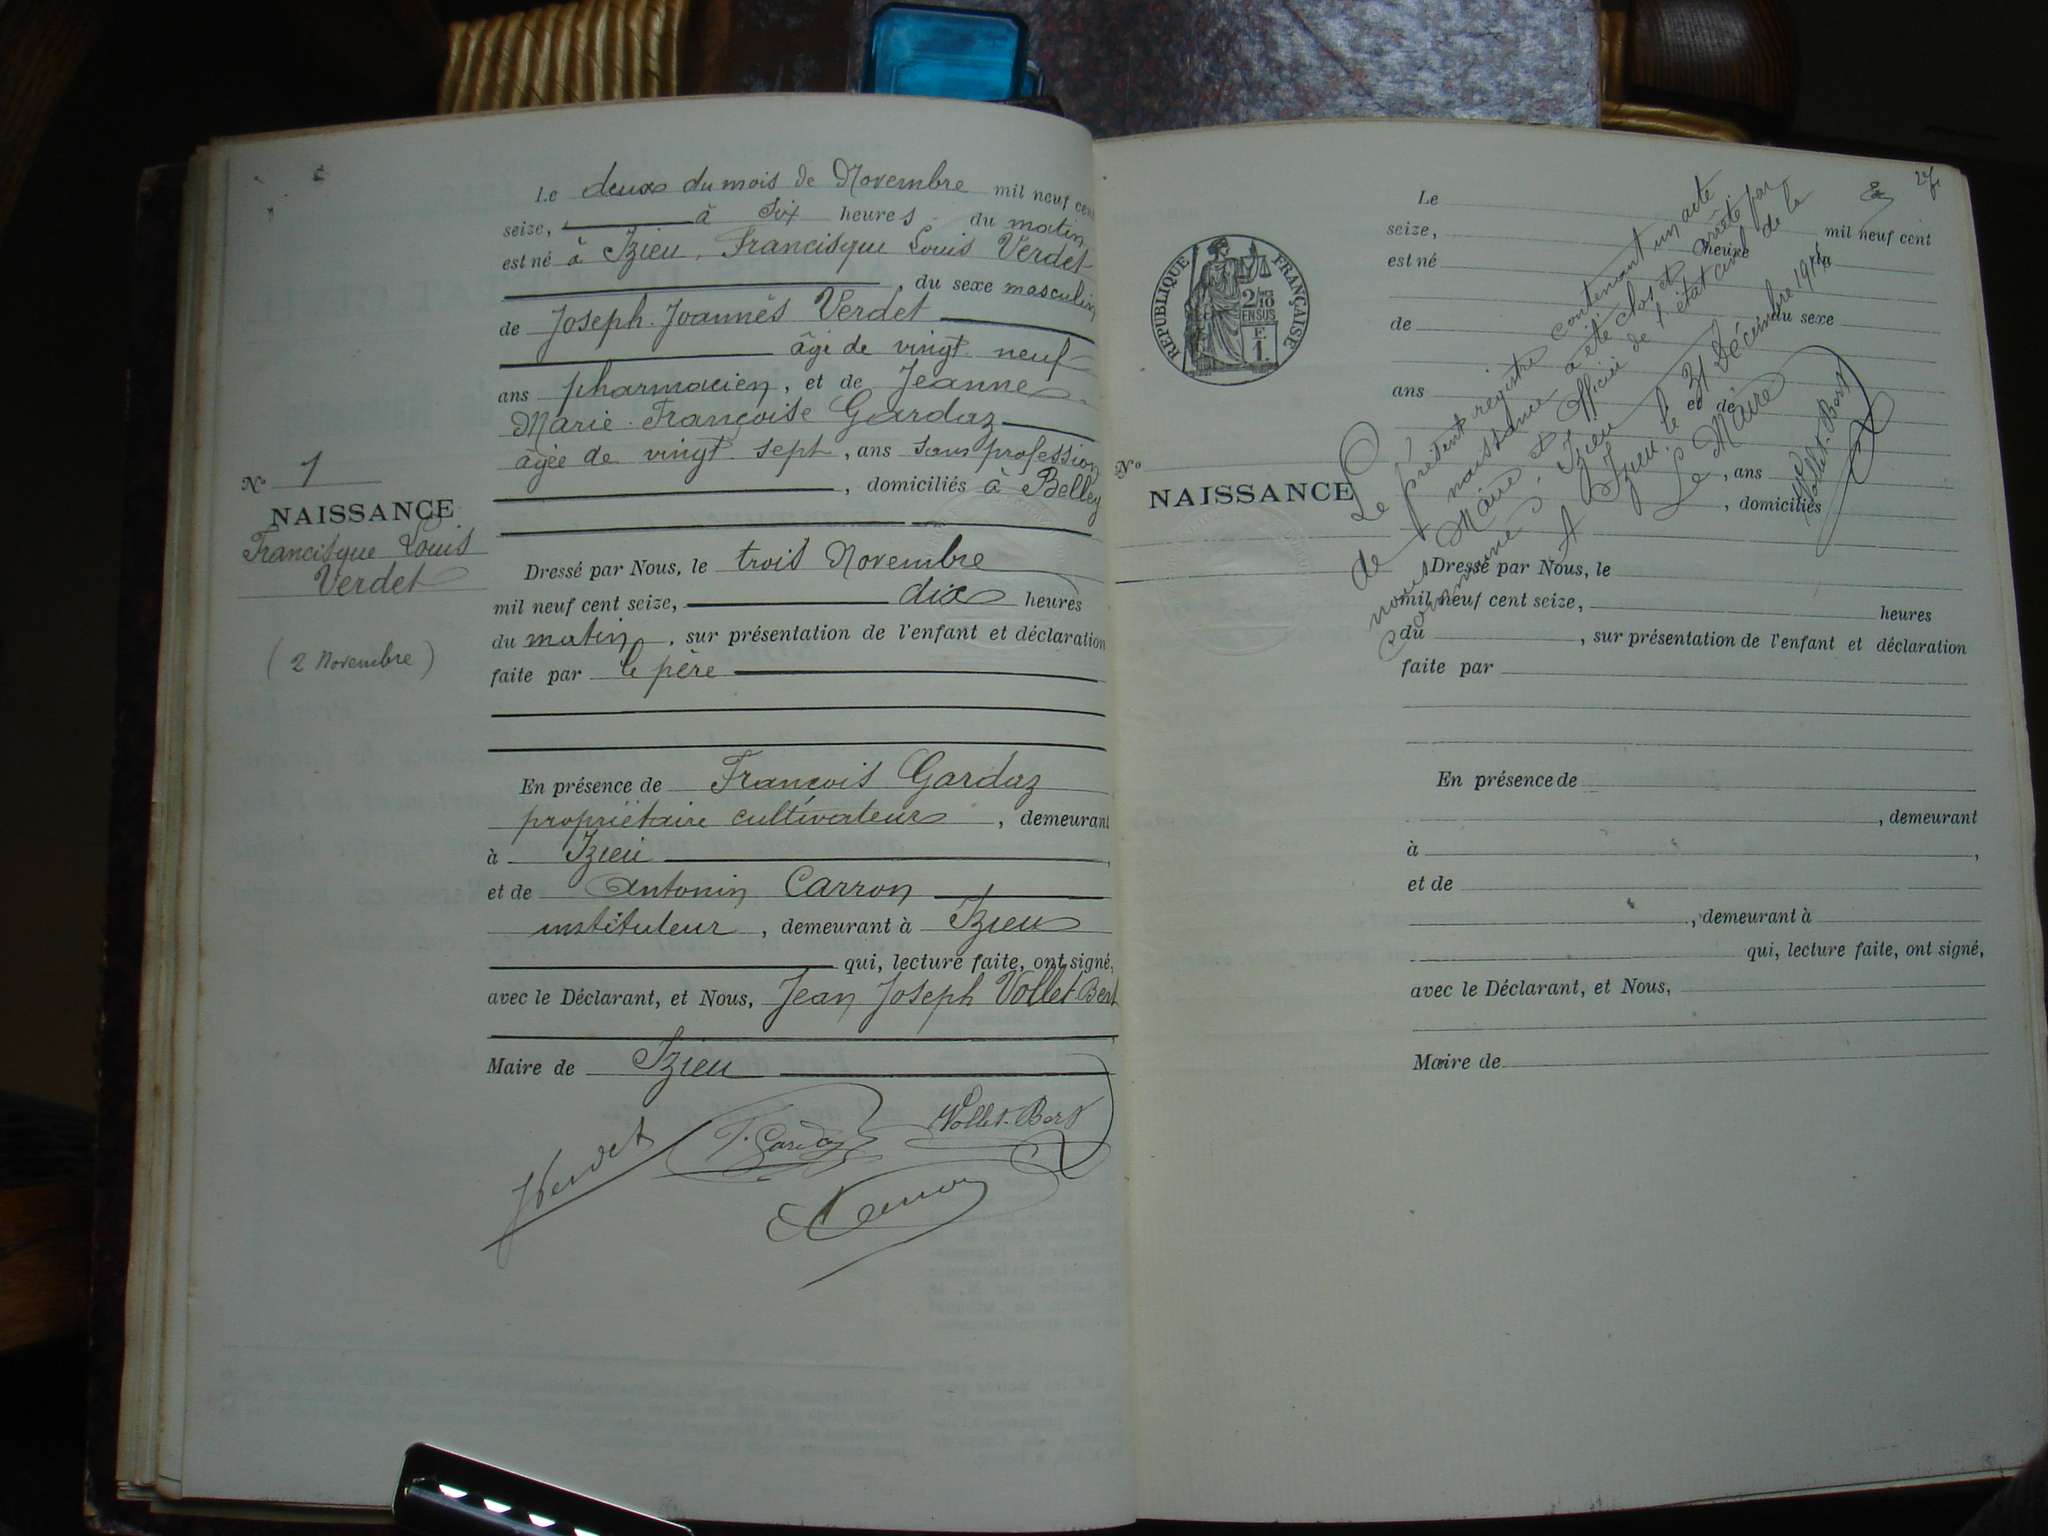 Le deux du mois de Novembre mil neuf cent
seize, à six heures du matin
est né à Izieu, Francisque Louis Verdet
, du sexe masculin
de Joseph Joannès Verdet
âgé de vingt neuf
ans pharmacien, et de Jeanne
Marie Françoise Gardaz
âgée de vingt sept, ans sans profession
, domiciliés à Belley
N° 1
NAISSANCE
Francisque Louis
Verdet
(2 Novembre)
Dressé par Nous, le trois Novembre
mil neuf cent seize, dix heures
du matin, sur présentation de l'enfant et déclaration
faite par le père
En présence de François Gardaz
propriétaire cultivateur, demeurant
à Izieu,
et de Antonin Carron
instituteur, demeurant à Izieu
qui, lecture faite, ont signé,
avec le Déclarant, et Nous, Jean Joseph Vollet Bert
Maire de Izieu
JVerdet
F. Gardaz
Vollet-Bert
REPUBLIQUE FRANÇAISE
2/10 EN SUS
E.
1.
Le
mil neuf cent
seize, heure du
est né
du sexe
de
ans et de
, ans
, domiciliés
N°
NAISSANCE
Le présent registre contenant un acte
de naissance a été clos et arrêté par
nous Maire et Officier de l'état civil de la
commune d'Izieu
A Izieu le 31 Décembre 1916
Le Maire
Vollet-Bert
Dressé par Nous, le
mil neuf cent seize, heures
du , sur présentation de l'enfant et déclaration
faite par
En présence de
, demeurant
à ,
et de
, demeurant à
qui, lecture faite, ont signé,
avec le Déclarant, et Nous,
Maire de